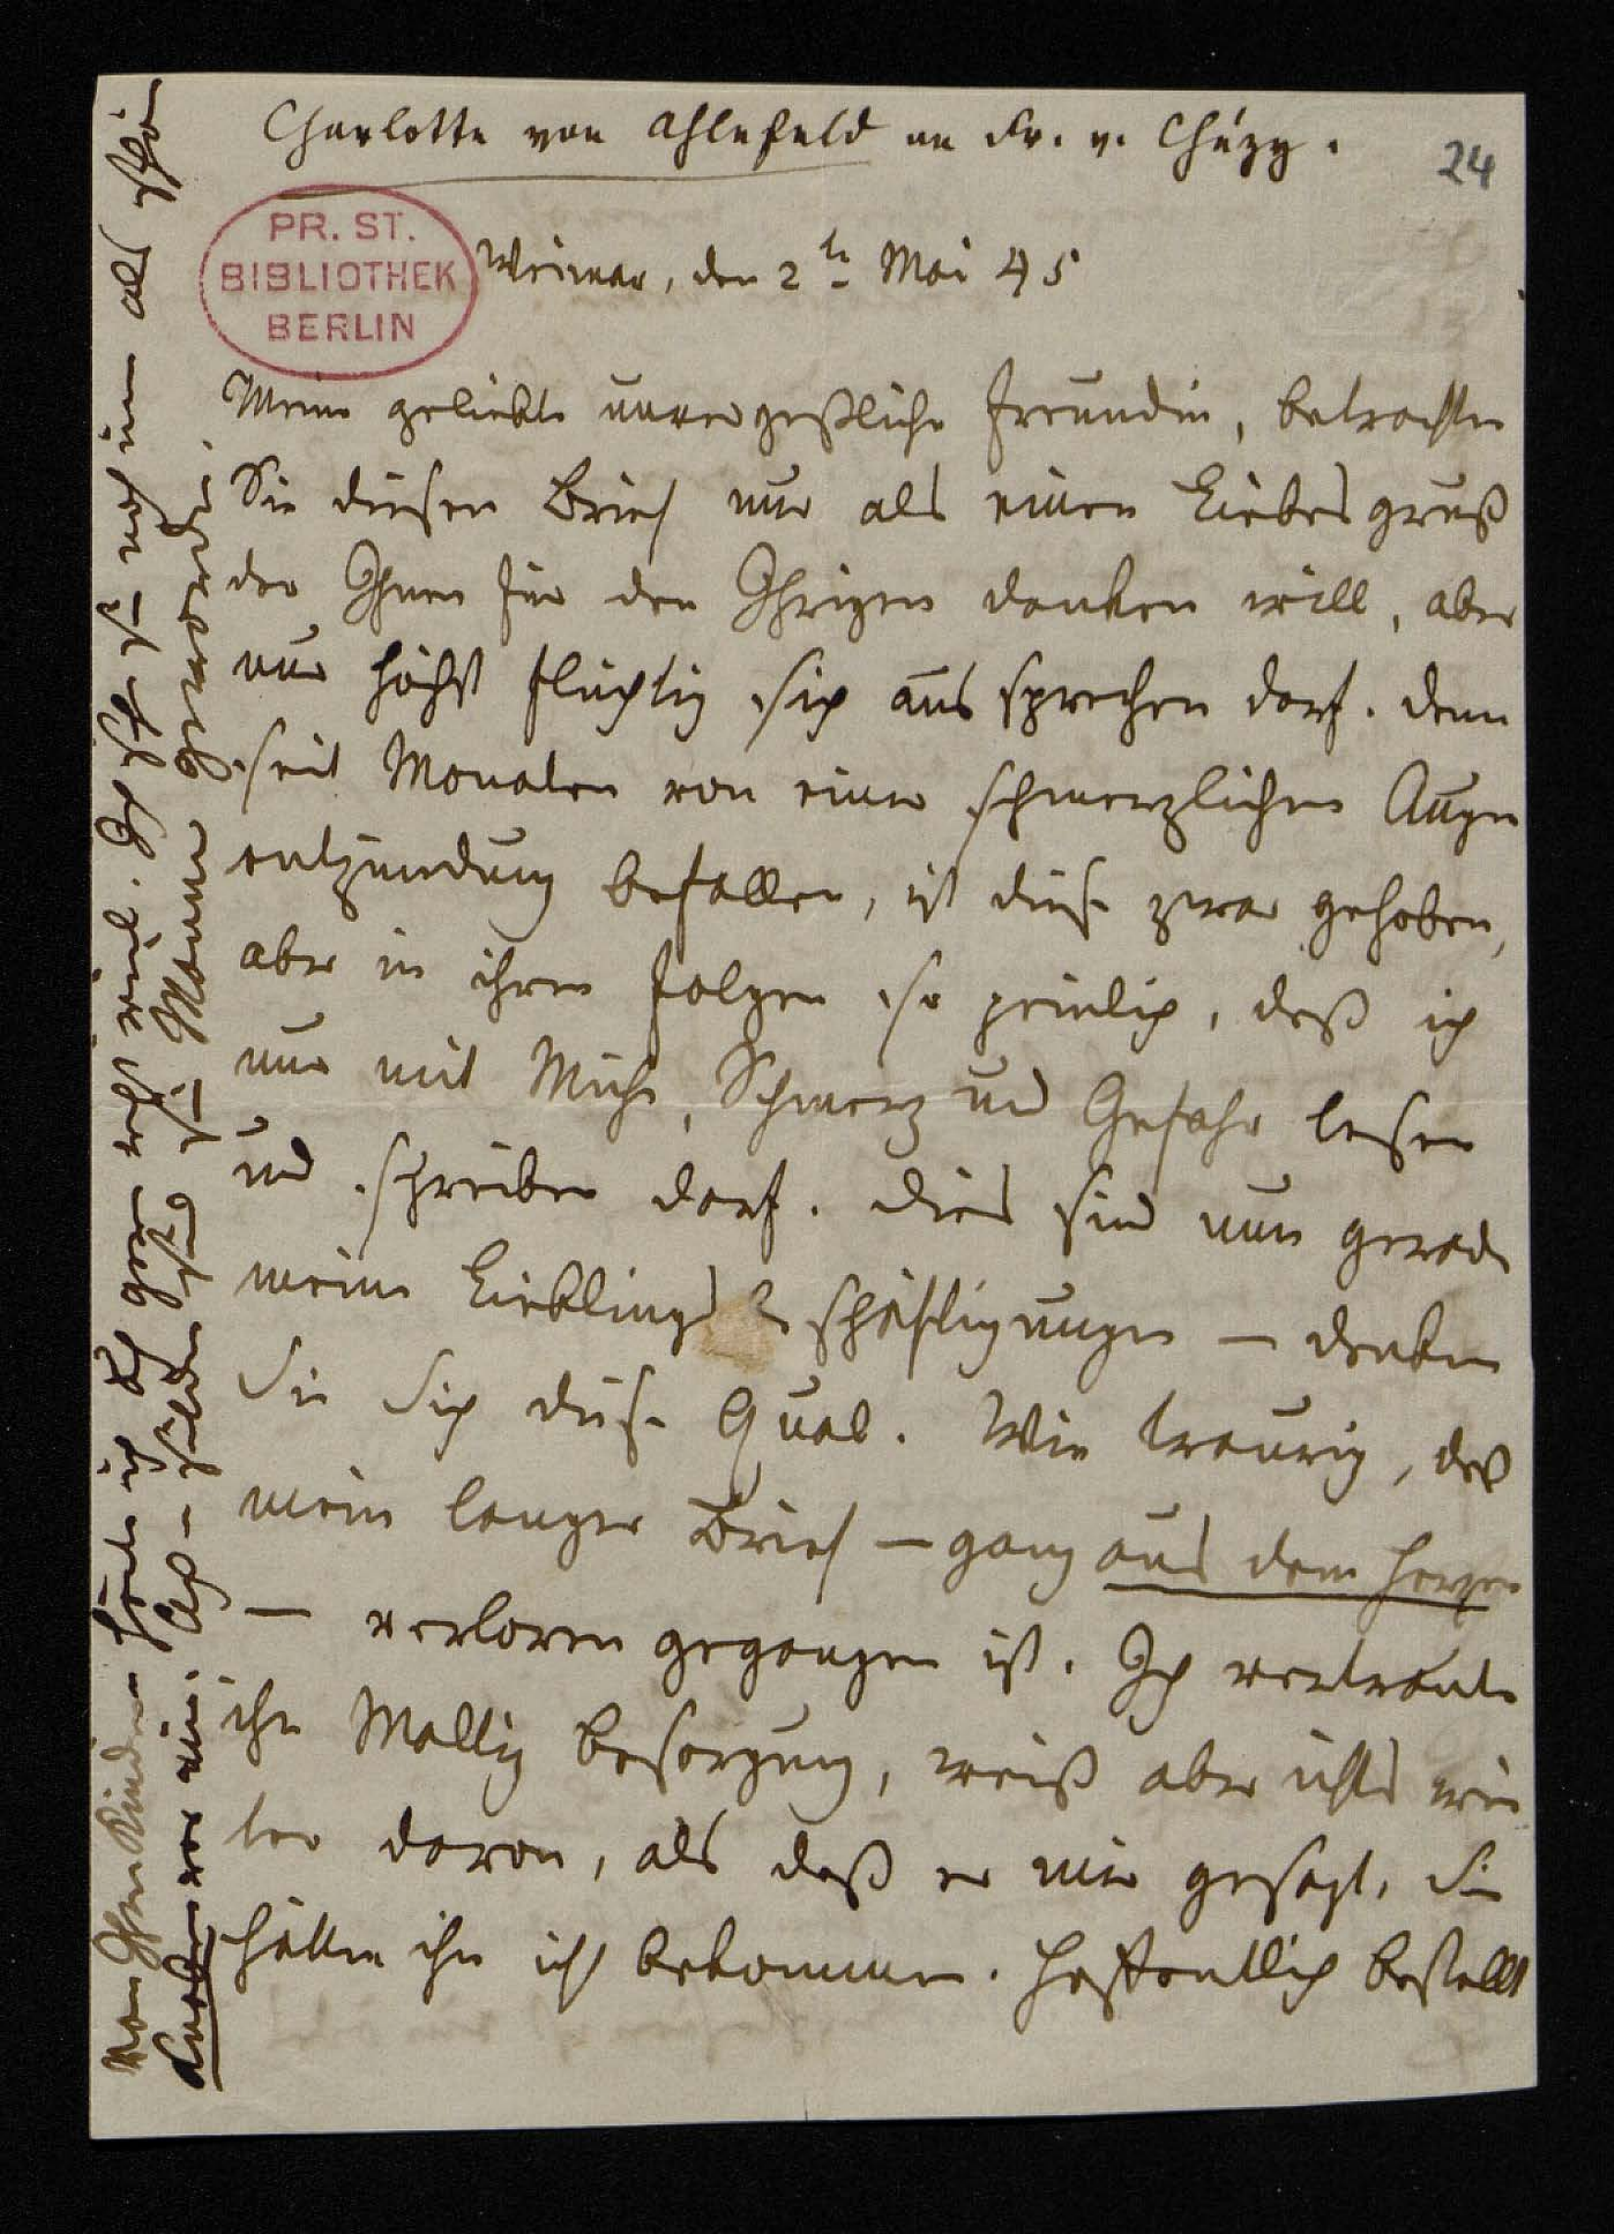 Charlotte von Ahlefeld an Fr. v. Chézy.
24
PR. ST.
BIBLIOTHEK
BERLIN
Weimar, den 2tn Mai 45
Meine geliebte unvergeßliche Freundin, betrachten
Sie diesen Brief nur als einen Liebesgruß
der Ihnen für den Ihrigen danken will, aber
nur höchst flüchtig sich aussprechen darf. denn
seit Monaten von einer schmerzlichen Augen
entzündung befallen, ist diese zwar gehoben,
aber in ihren Folgen so peinlich, daß ich
nur mit Mühe, Schmerz und Gefahr lesen
und schreiben darf. dies sind nun gerade
meine Lieblingsbeschäftigungen – denken
Sie Sich diese Qual. Wie traurig, daß
mein langer Brief – ganz aus dem Herzen
– verloren gegangen ist. Ich vertraute
ihn Maltiz Besorgung, weiß aber nichts wei
ter davon, als daß er mir gesagt, Sie
hätten ihn nicht bekommen. Hoffentlich bestellt
Von Ihren Kindern hörte ich auch gern recht viel. Ich sehe sie noch immer als schöne
Knaben vor mir. Ach – seitdem sind sie Männer geworden.